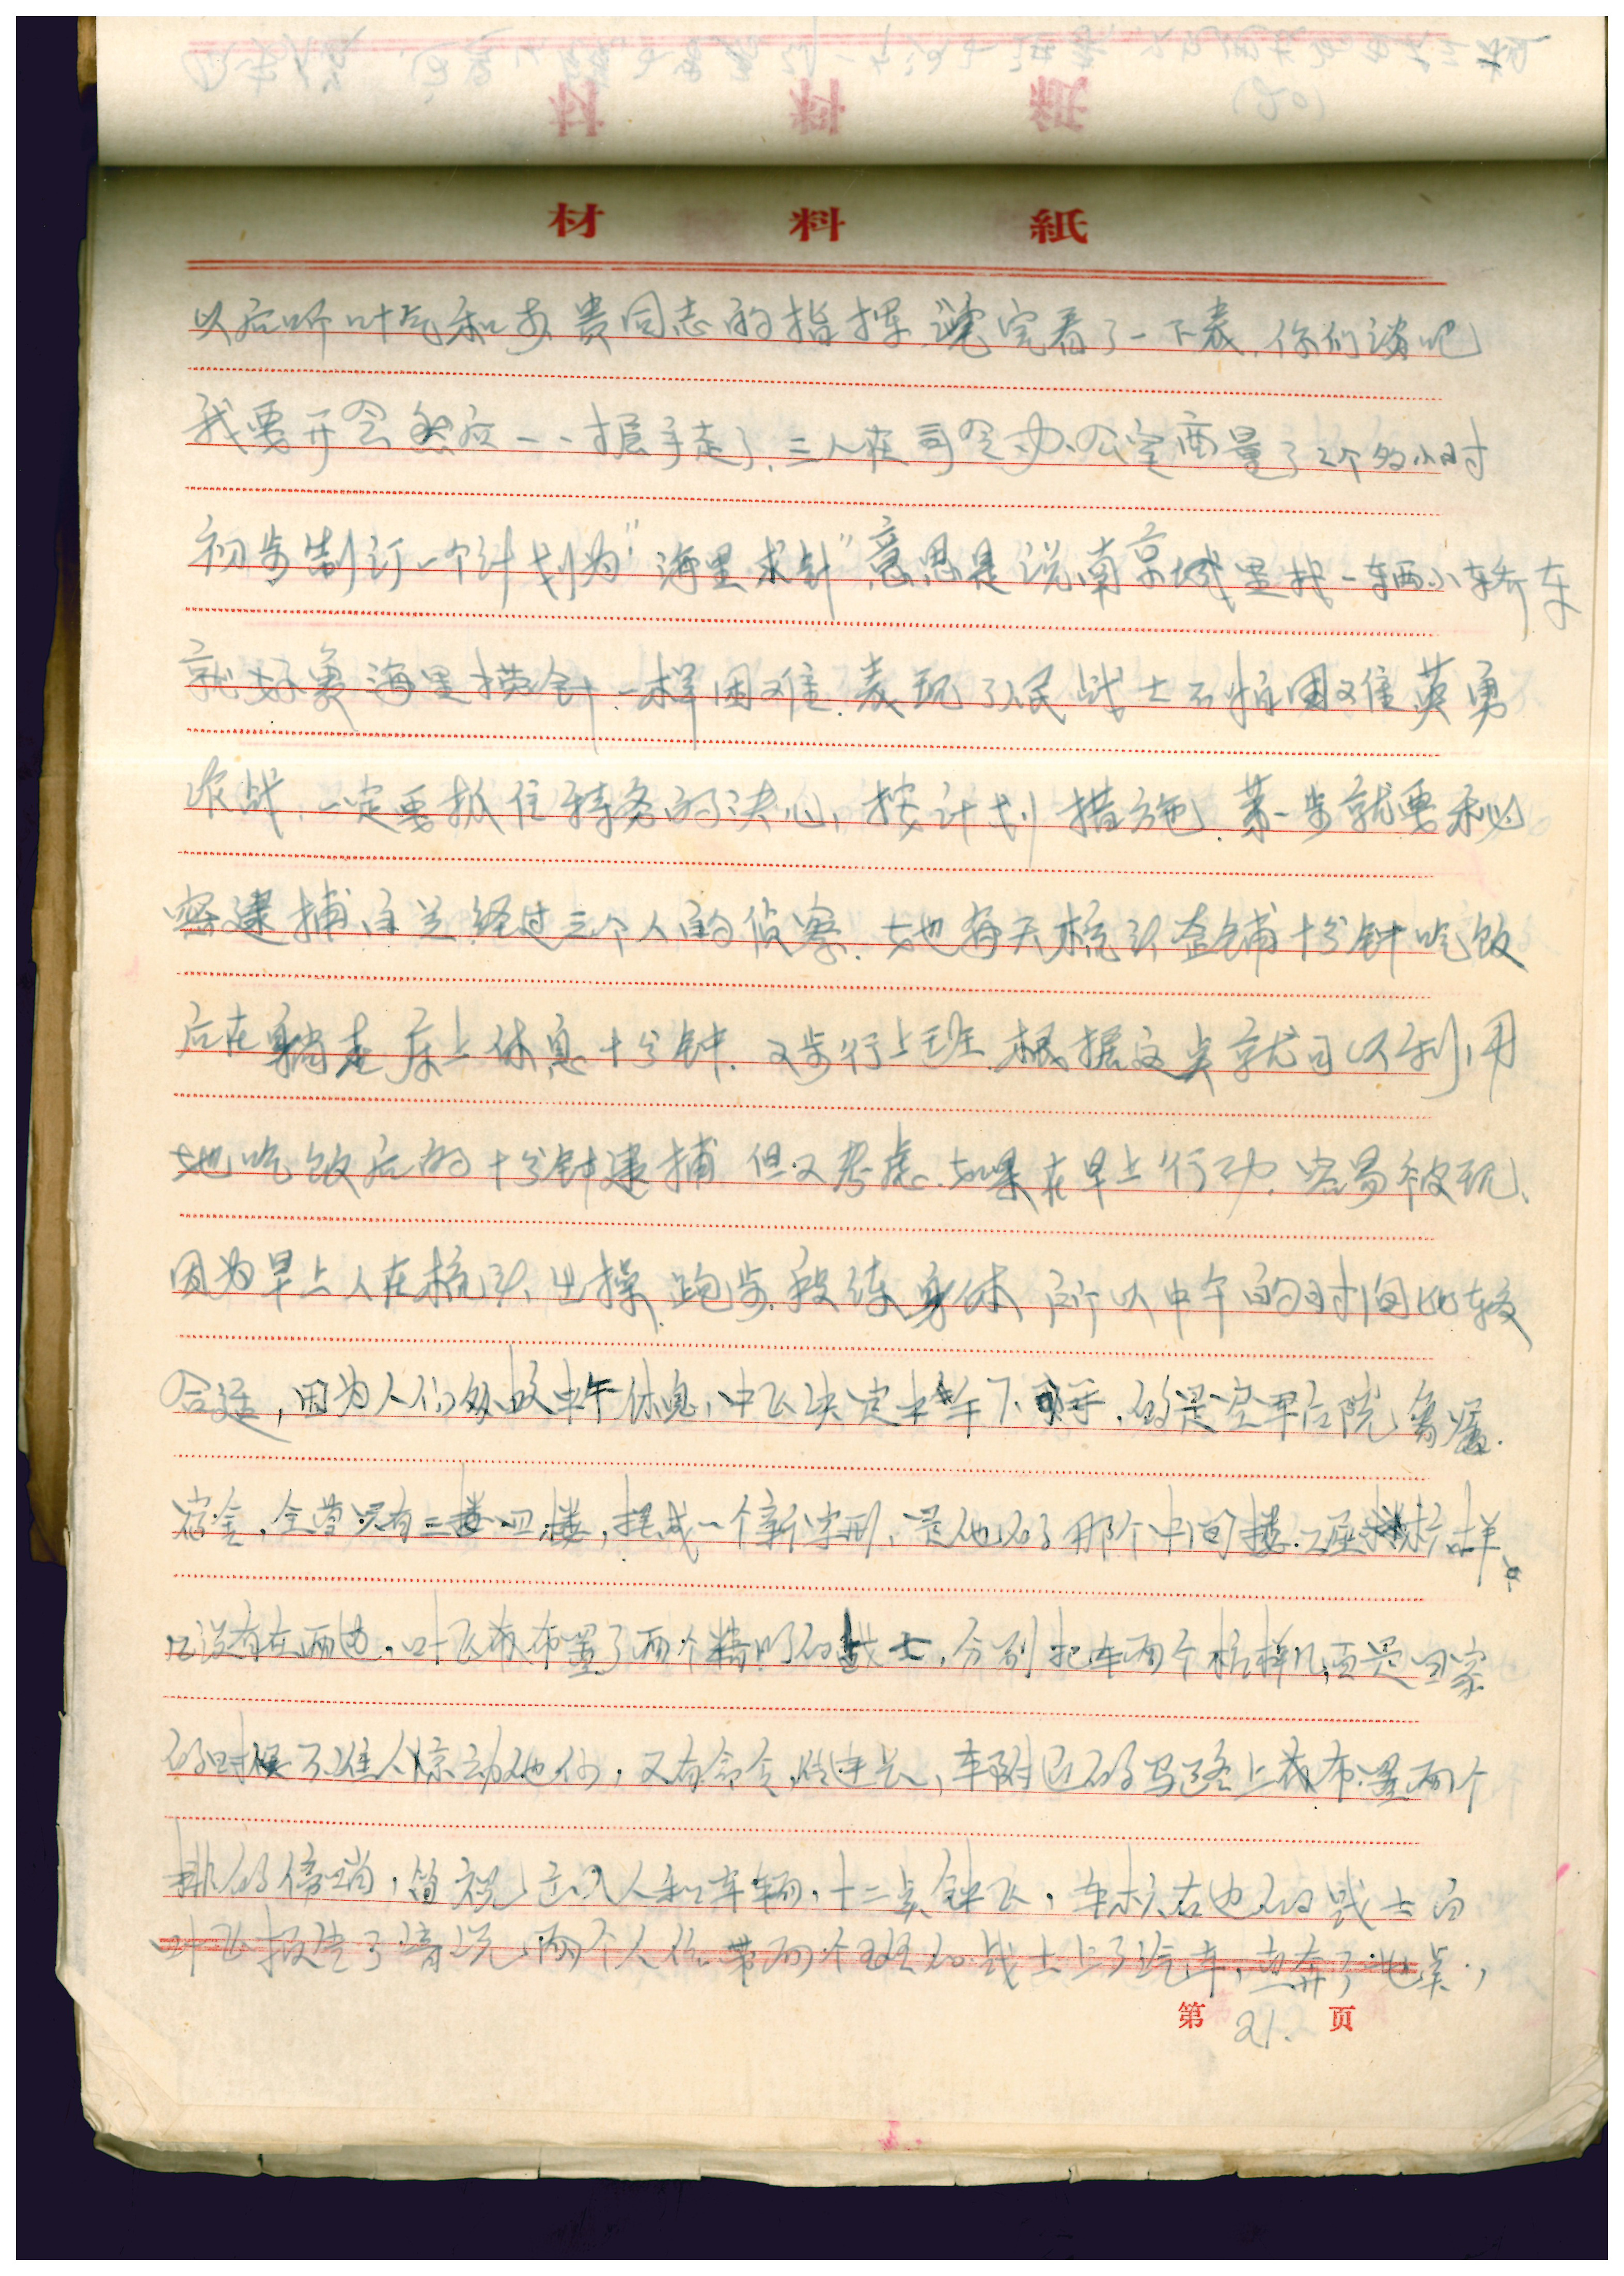 材料紙
以后听叶飞和安贵同志的指挥说完看了一下表,你们谈吧
我要开会然后一、一握手走了,三人在司令办公室商量了2个多小时
初步制订一个计划为"海里求针"意思是说南京城里找一辆小轿车
就好象海里摸针一样困难,表现了人民战士不怕困难英勇
作战,一定要抓住特务的决心,按计划措施,第一步就要秘
密逮捕 经过三个人的侦察,她每天梳头 铺十分钟吃饭
后在躺走床上休息十分钟,又步行上班,根据这点就可以利用
她吃饭后的十分钟逮捕 但又考虑,如果在早上行动,容易被现、
因为早上人在梳头、出操、跑步、段练身体 所以中午的时间比较
合适,因为人们 中午休息、 飞决定中午下手,的是空军后院
宿舍,全 只有三楼四楼,摆成一个新字刑、是他的那个中间楼,
没有在两边,叶飞 布置了两个精明的战士,分别把 两个 是回家
的时候不准人惊动他们,又有命令 连长,车附近的马路上 布置两个
排的 哨, 视 人和车辆,十二点钟飞, 右边的战士向
叶飞报告了情况,两个人位带两个班的战士上了汽车,直奔了 ,
第21.页